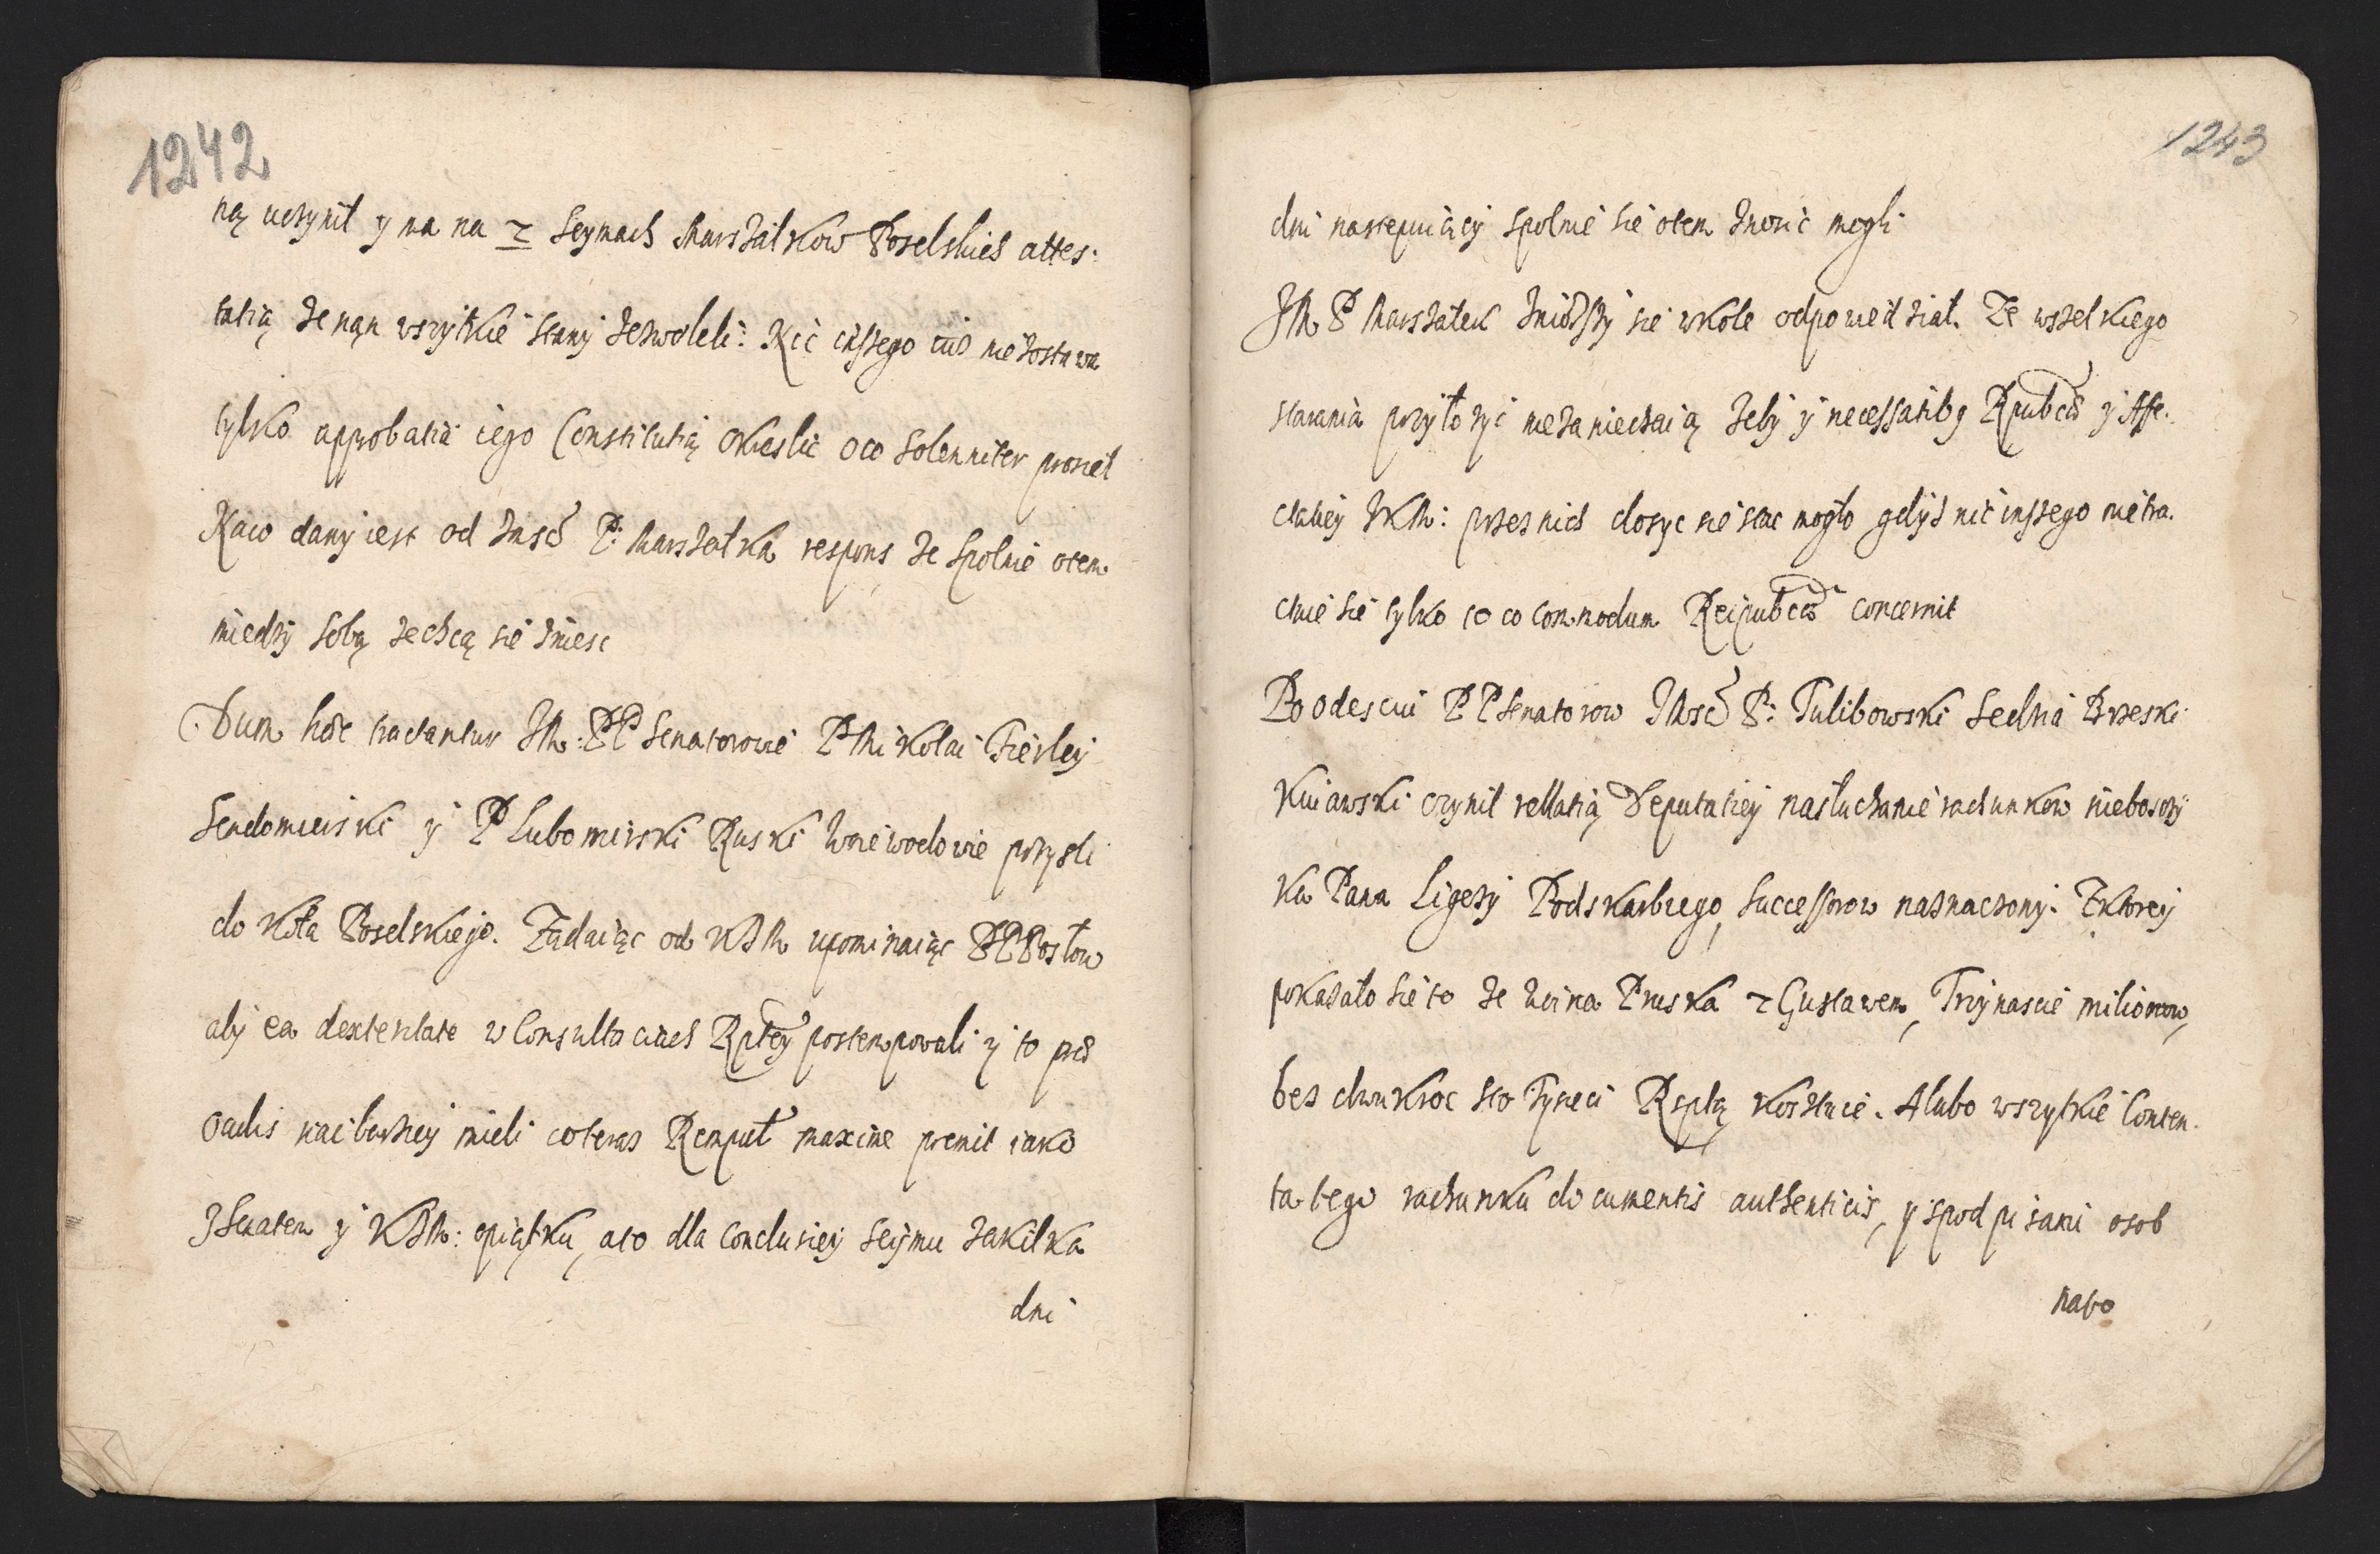 1242
ną uczynił y ma na z Seymach Marszałkow Poselskich attes:
tatią ze nąn wszytkie stany zezwoleli: Nic inszego iusz nie zostawa
tylko approbatią iego Constitutią okreslic oco Solenniter prosieł
Naco dany iest od Jmsci P: Marszałka respons ze spolnie otem
miedzy sobą zechcą sie zniesc
Dum haec tractantur Jch: PP Senatorowie P Mikołai Fierley
Sendomierski y P Lubomirski Ruski Woiewodowie przyszli
do Koła Poselskiego. Ządaiąc od KJM upominaiąc PP Posłow
aby ea dexteritate w Consultaciach Rptey postempowali y to prae
oculis naibarziey mieli co teras Rempub maxime premit iako
Senatem y KJM: opiątku, ato dla Conclusiey seymu zakilka
dni
1243
dni nastepuiący spolnie sie otem znosic mogli
JM P Marszałek zniozszy sie wkole odpowiedział. Ze wszelkiego
starania przyłozyc niezaniechaią zeby y necessatibq Rpubcae y Affe.
ctatiey JKM: przez nich dosyc sie stac mogło gdysz nic inszego nietra.
ctuie sie tylko to co commodum Reipubcae concernit
Poodesciu PP Senatorow JMsci P: Tulibowski Sedzia Brzeski
Kuiawski czynił rellatią Deputatiey nasłuchanie rachunkow nieboszczy
ka Pana Ligezy Podskarbiego, Successorow naznaczony: Zktorey
pokazało sie to ze woina Pruska z Gustawem, Trzynascie milionow,
bez dwukroc sto Tysieci Rsptą kosztuie. Alubo wszytkie Conten.
ta tego rachunku documentis authenticis, y spodpisami osob
nato